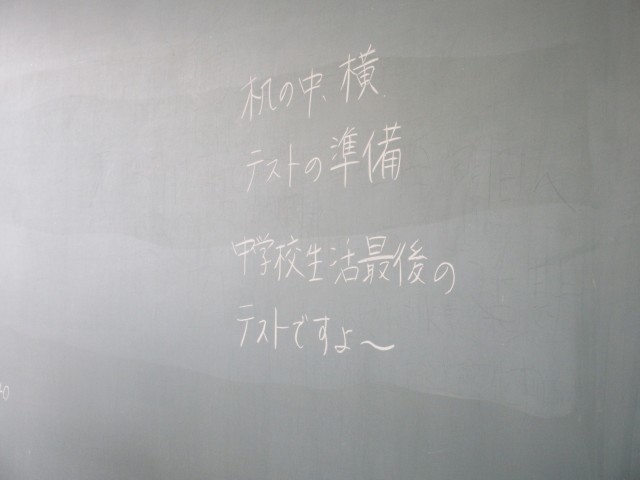 机の中、横
テストの準備
中学校生活最後の
テストですよ〜